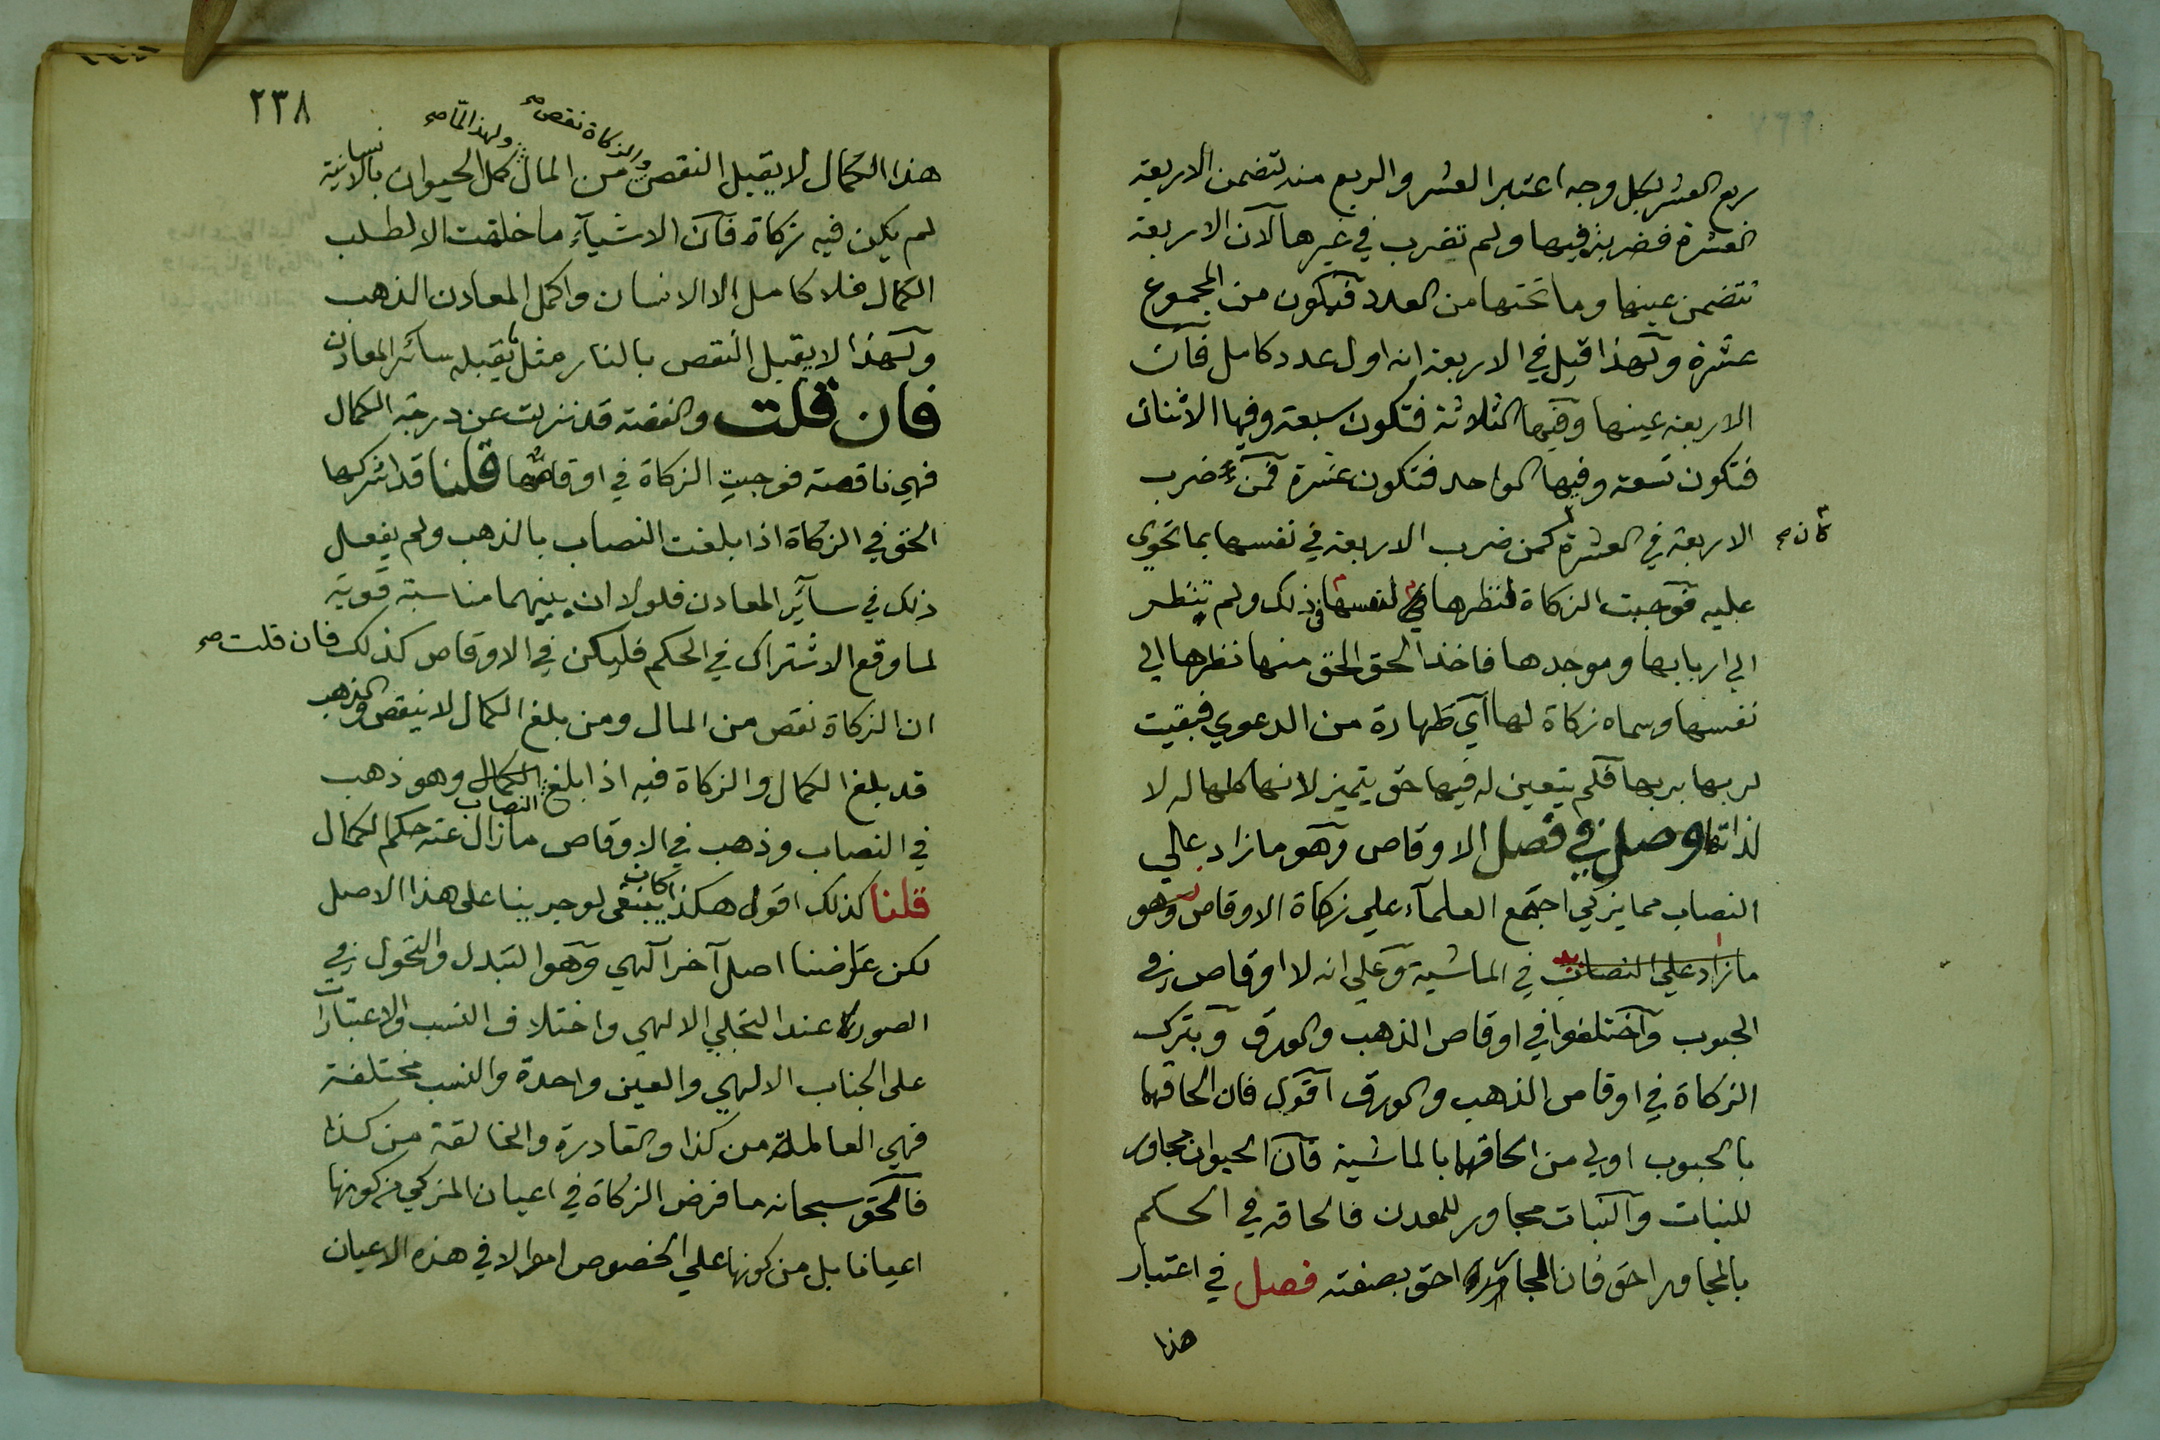 ربع العشر بكل وجه اعتبر العشر والربع منه لتضمن الاربعة
العشرة فضربت فيها ولم تضرب في غيرها لان الاربعة
تتضمن عينها وما تحتها من العدد فيكون من المجموع
عشرة ولهذا قيل في الاربعة انه اول عدد كامل فان
الاربعة عينها وفيها الثلاثة فتكون سبعة وفيها الاثنان
فتكون تسعة وفيها الواحد فتكون عشرة فمن ضرب
الاربعة في العشرة كمن ضرب الاربعة في نفسها بما تحوي
كان صح
عليه فوجبت الزكاة لنظرها لنفسها في ذلك ولم ينظر
الي اربابها وموجدها فاخذ الحق الحق منها نظرها الي
نفسها وسماه زكاة لها اي طهارة من الدعوي فبقيت
لربها بربها فلم يتعين له فيها حق يتميز لانها كلها له لا
لذاتها وصل في فصل الاوقاص وهو ما زاد علي
النصاب مما يزكي اجتمع العلمآء علي زكاة الاوقاص وهو
ما زاد علي النصاب في الماشية وعلي انه لا اوقاص في
الحبوب واختلفوا في اوقاص الذهب والورق وبترك
الزكاة في اوقاص الذهب والورق اقول فان الحاقها
بالحبوب اولي من الحاقها بالماشية فان الحيوان مجاور
للنبات والنبات مجاور للمعدن فالحاقه في الحكم
بالمجاور احق فان المجاور احق بصفته فصل في اعتبار
هذا
٢٣٨
والزكاة نقص صح
ولهذا لما صح
هذا الكمال لا يقبل النقص من المال كمل الحيوان بالانسانية
لم يكن فيه زكاة فان الاشيآء ما خلقت الا لطلب
الكمال فلا كامل الا الانسان واكمل المعادن الذهب
ولهذا لا يقبل النقص بالنار مثل ما يقبله سائر المعادن
فان قلت والفضة قد نزلت عن درجة الكمال
فهي ناقصة فوجبت الزكاة في اوقاصها قلنا قد اشركها
الحق في الزكاة اذا بلغت النصاب بالذهب ولم يفعل
ذلك في سآئر المعادن فلولا ان بينهما مناسبة قوية
لما وقع الاشتراك في الحكم فليكن في الاوقاص كذلك فان قلت صح
ان الزكاة نقص من المال ومن بلغ الكمال لا ينقص والذهب
قد بلغ الكمال والزكاة فيه اذا بلغ الكمال وهو ذهب
النصاب
في النصاب وذهب في الاوقاص ما زال عنه حكم الكمال
قلنا كذلك اقول هكذا كان ينبغي لو جرينا على هذا الاصل
لكن عارضنا اصل آخر الهي وهو التبدل والتحول في
الصور عند التجلي الالهي واختلاف النسب والاعتبارات
على الجناب الالهي والعين واحدة والنسب مختلفة
فهي العالمة من كذا والقادرة والخالقة من كذا
فالحق سبحانه ما فرض الزكاة في اعيان المزكي من كونها
اعيانا بل من كونها علي الخصوص اموالا في هذه الاعيان